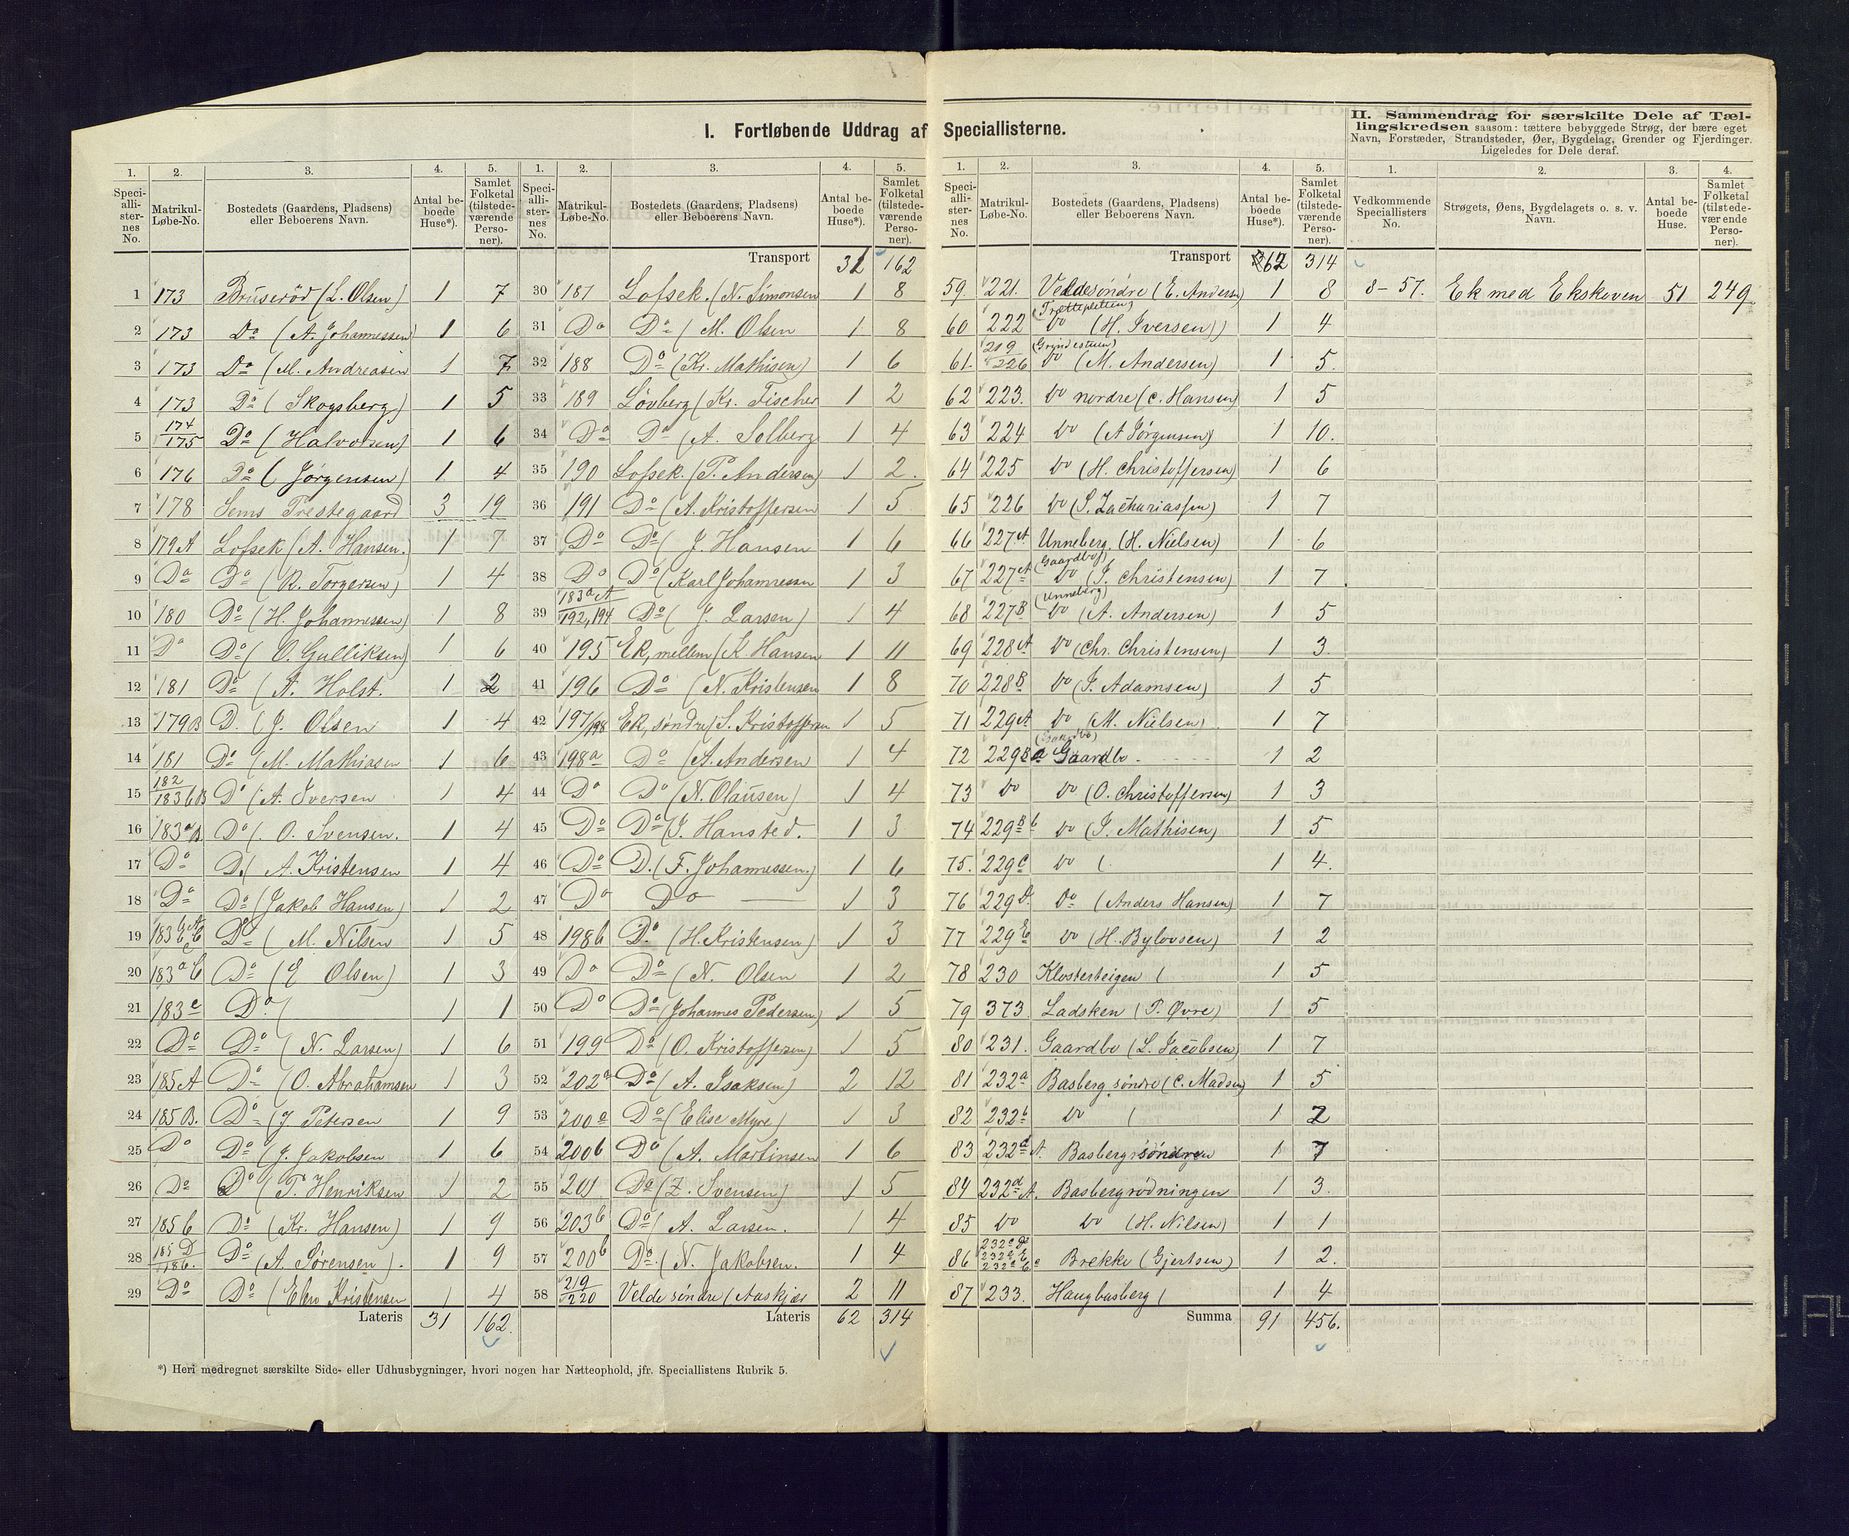 I. Fortløbende Uddrag af Speciallisterne.
II. Sammendrag for særskilte Dele af Tællingskredsen saasom: tættere bebyggede Strøg, der bære eget
Navn, Forstæder, Strandsteder, Øer, Bygdelag, Grender og Fjerdinger.
Ligeledes for Dele deraf.
1. 2. 3. 4. 5.
Speciallisternes No. Matrikul-Løbe-No. Bostedets (Gaardens, Pladsens) eller Beboerens Navn. Antal beboede Huse*). Samlet Folketal (tilstedeværende Personer).
1 173 Bruserød (L. Olsen) 1 7
2 173 Do (A. Johannessen 1 6
3 173 Do (M. Andreasen 1 7
4 173 Do (Skogsberg) 1 5
5 174/175 Do (Halvorsen) 1 6
6 176 Do (Jørgensen) 1 4
7 178 Sems Prestegaard 3 19
8 179A Lofsek (A. Hansen. 1 7
9 Do Do (R. Torgersen) 1 4
10 180 Do (H. Johannessen) 1 8
11 Do Do (O. Gulliksen) 1 6
12 181 Do (A. Holst. 1 2
13 179B D. (J. Olsen 1 4
14 181 Do (M. Mathiasen 1 6
15 182/183bB Do (A. Iversen 1 4
16 183aB Do (O. Svensen. 1 4
17 Do D. (A. Kristensen 1 4
18 Do Do (Jakob Hansen) 1 2
19 Do (M. Nilsen 1 5
20 183aC Do (E Olsen) 1 3
21 183c Do ( 1 1
22 Do Do (N. Larsen) 1 6
23 185A Do (O. Abrahamsen 1 3
24 185B. Do (J Petersen 1 9
25 Do Do (J. Jakobsen 1 6
26 Do Do (T. Henriksen 1 2
27 185C Do (Kr. Hansen) 1 9
28 185D/186. Do (A. Sørensen). 1 9
29 Do Do (Elen Kristensen 1 4
Lateris 31 162.
1. 2. 3. 4. 5.
Speciallisternes No. Matrikul-Løbe-No. Bostedets (Gaardens, Pladsens) eller Beboerens Navn. Antal beboede Huse*). Samlet Folketal (tilstedeværende Personer).
Transport 31 162
30 187 Lofsek. (N. Simonsen 1 8
31 Do Do (M. Olsen 1 8
32 188 Do (Kr. Mathisen) 1 6
33 189 Løvberg (Kr. Fischer 1 2
34 Do Do (A. Solberg 1 4
35 190 Lofsek. (P. Andersen) 1 2.
36 191 Do (A. Kristoffersen 1 5
37 Do Do (J. Hansen 1 6
38 Do Do (Karl Johannessen 1 3
39 183aA/192,194 Do (J. Larsen) 1 4
40 195 Ek, mellem (K. Hansen 1 11
41 196 Do (N. Kristensen 1 8
42 197/198 Ek, søndre (S. Kristoffersen 1 5
43 198a Do (A. Andersen 1 4
44 Do Do (N. Olausen) 1 4
45 Do Do (J. Hansted. 1 3
46 Do D. (F. Johannessen.) 1 6
47 Do Do — 1 3
48 198b D. (H. Kristensen) 1 3
49 Do Do (N. Olsen 1 2
50 Do Do (Johannes Pedersen) 1 5
51 199 Do (O. Kristoffersen) 1 5
52 202a Do (A. Isaksen) 2 12
53 200a Do (Elise Myre) 1 3
54 200b Do (A. Martinsen 1 6
55 201 Do (Z. Svensen) 1 5
56 203b Do (A. Larsen. 1 4
57 200b Do. (N. Jakobsen. 1 4
58 219/220 Velde søndre (Aaskjær 2 11
Lateris 62 314
1. 2. 3. 4. 5.
Speciallisternes No. Matrikul-Løbe-No. Bostedets (Gaardens, Pladsens) eller Beboerens Navn. Antal beboede Huse*). Samlet Folketal (tilstedeværende Personer).
Transport 62 314
59 221. Velde søndre (E. Andersen 1 8
60 222 (Trætteplatten) Do (H. Iversen)) 1 4
61. 219/226 (Gryndestuen) Do (M. Andersen) 1 5.
62 223. Do nordre (C. Hansen) 1 5
63 224 Do (A Jørgensen) 1 10.
64 225 Do (H. Christoffersen) 1 6
65 226 Do (S. Zachariassen) 1 7
66 227A Unneberg. (H. Nielsen) 1 6
67 227A (Gaardbo) Do (J. Christensen) 1 7
68 227B (Unneberg) Do (A. Andersen) 1 5
69 228A Do (Chr. Christensen) 1 3.
70 228B Do (J. Adamsen) 1 5
71 229A Do (M. Nielsen) 1 7
72 229Ba (Gaardbo) Gaardbo 1 2
73 Do Do (O. Christoffersen) 1 3
74 229Bb Do (J. Mathisen) 1 5
75. 229C Do ( 1 4.
76 229D. Do (Anders Hansen) 1 7
77 229E Do (H. Bylovsen) 1 2
78 230 Klosterteigen ( 1 5
79 373 Ladsken (P. Øvre) 1 5
80 231. Gaardbo (L. Jacobsen) 1 7
81 232a Basberg søndre (C. Madsen) 1 5
82 232b Do ( 1 2
83 232dA. Basberg søndre 1 7
84 232dA. Basbergrødningen 1 3.
85 Do Do (H. Nilsen) 1 1
86 Brekke (Gjertsen) 1 2.
87 233. Haugbasberg ( 1 4
Summa 91 456.
1. 2. 3. 4.
Vedkommende Speciallisters No. Strøgets, Øens, Bygdelagets o. s. v. Navn. Antal beboede Huse. Samlet Folketal (tilstedeværende Personer).
8–57. Ek med Ekskoven 51 249
*) Heri medregnet særskilte Side- eller Udhusbygninger, hvori nogen har Natteophold, jfr. Speciallistens Rubrik 5.